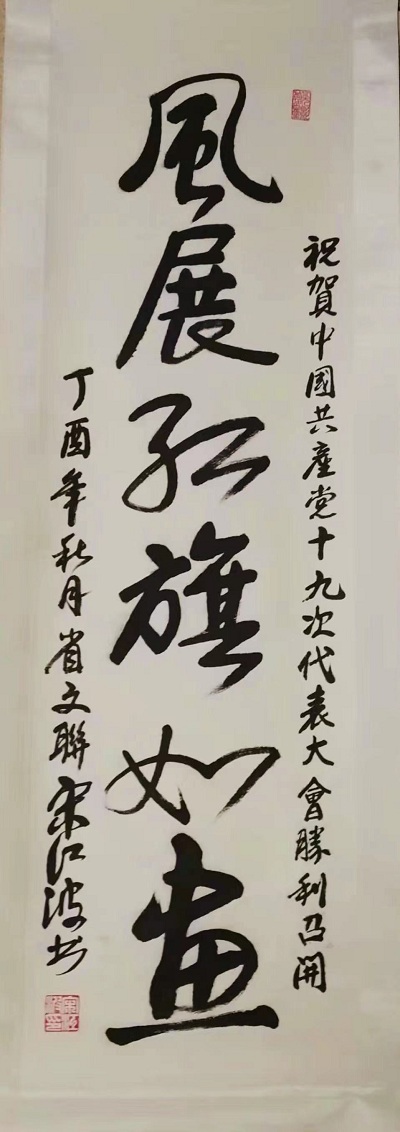 祝賀中國共產党十九次代表大會勝利召開
風展紅旗如畫
丁酉年秋月省文聯宋江波书